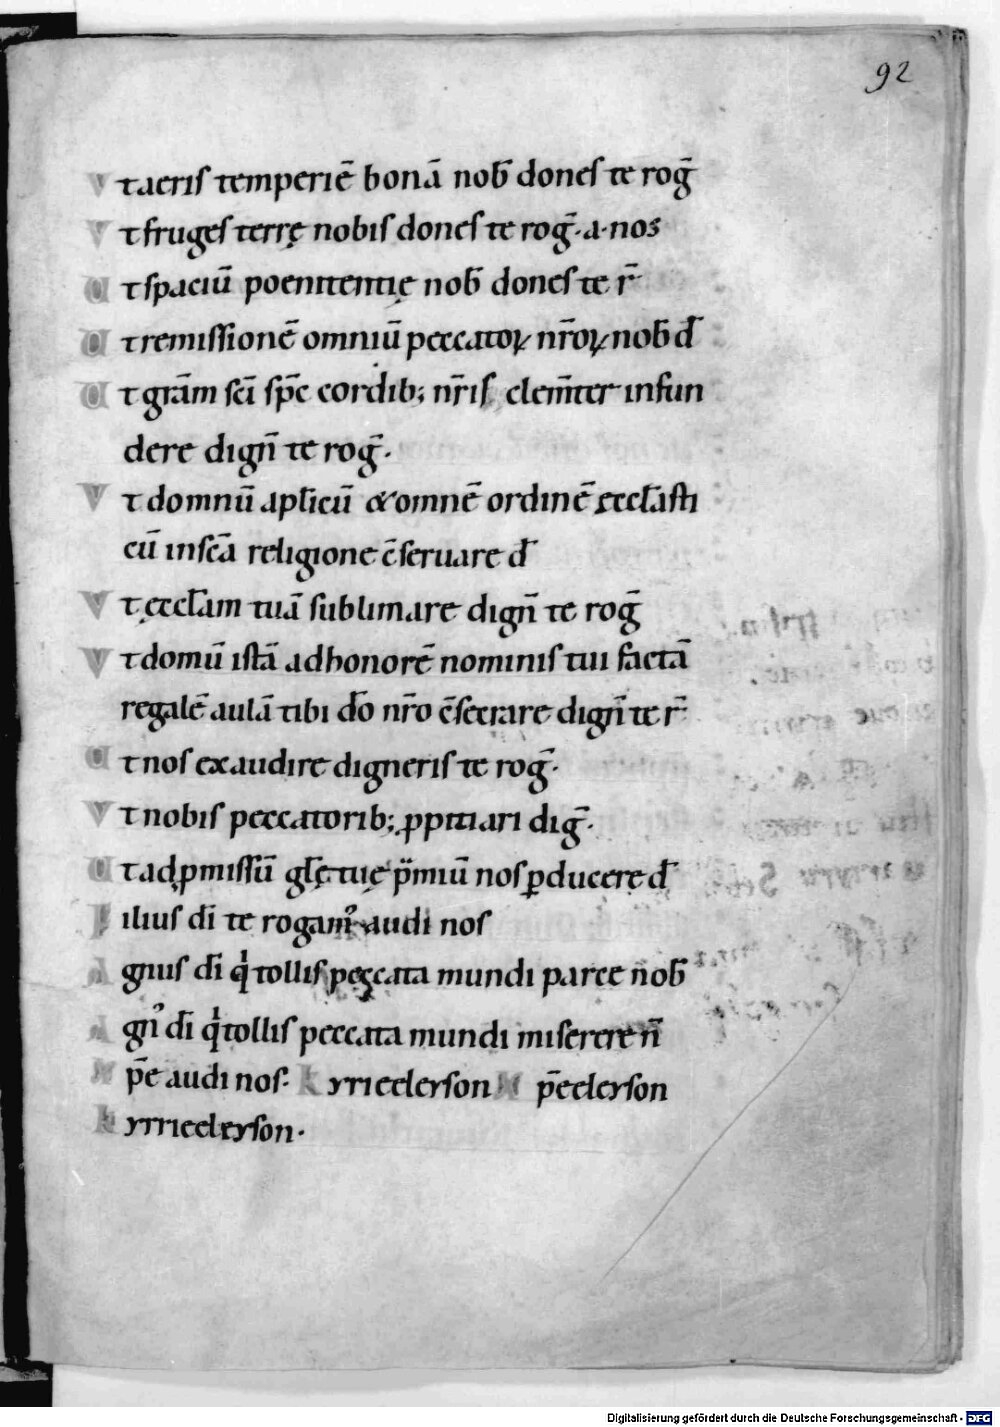 92
Vt aeris temperiē bonā nob̄ dones te roḡ
Vt fruges terrę nobis dones te roḡ·a·nos
Ut spaciū poenitentię nob̄ dones te r̄
Ut remissionē omniū peccatoꝝ nr̄oꝝ nob̄ d̄
Ut gr̄am sc̄i sp̄c cordib; nr̄is clem̄ter infun
dere dign̄ te roḡ·
Vt domnū apl̄icū & omnē ordinē ęccl̄asti
cū in sc̄a religione c̄seruare d̄
Vt ęccl̄am tuā sublimare dign̄ te roḡ
Vt domū istā ad honorē nominis tui factā
regalē aulā tibi do̅ nr̄o c̄secrare dign̄ te r̄
Ut nos exaudire digneris te roḡ·
Vt nobis peccatorib; ꝓpitiari diḡ·
Ut ad ꝓmissū gl̄ę tuę p̄miū nos ꝑducere d̄
Filius di̅ te rogam᾿ audi nos
Agnus di̅ q̇ tollis peccata mundi parce nob̄
Agn᾿ di̅ q̇ tollis peccata mundi miserere n̄
Xp̄e audi nos· Kyrieeleyson Xp̄eeleyson
Kyrrieeleyson·
Digitalisierung gefördert durch die Deutsche Forschungsgemeinschaft - DFG